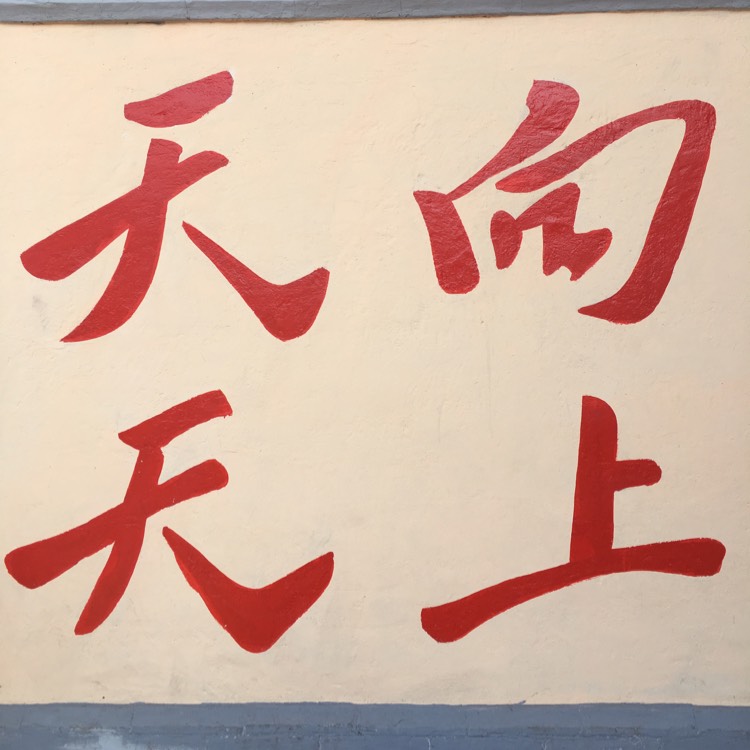 天天
向上